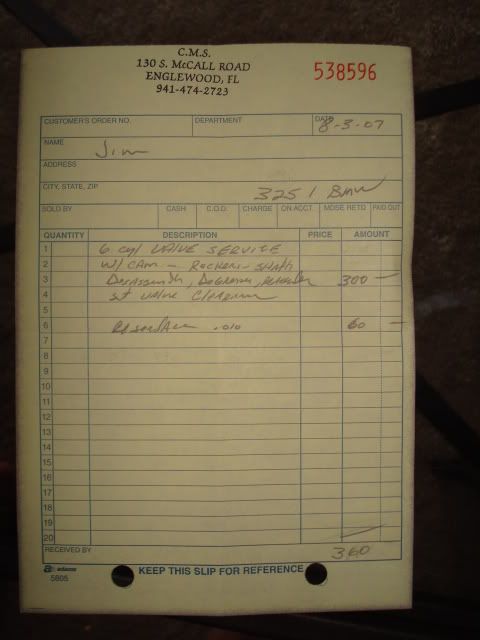 C.M.S.
130 S. McCALL ROAD
ENGLEWOOD, FL
941-474-2723
538596
CUSTOMER'S ORDER NO. DEPARTMENT DATE 8-3-07
NAME Jim
ADDRESS
CITY, STATE, ZIP
325 i BMW
SOLD BY CASH C.O.D. CHARGE ON ACCT. MDSE RETD PAID OUT
QUANTITY DESCRIPTION PRICE AMOUNT
1 6 cyl VALVE SERVICE
2 W/ CAM - ROCKERS - SHAFTS
3 Disassemble, Degrease, 300 -
4 Set valve Clearance
5
6 Resurface .010 60 -
7
8
9
10
11
12
13
14
15
16
17
18
19
20
RECEIVED BY 360
adams
5805 KEEP THIS SLIP FOR REFERENCE